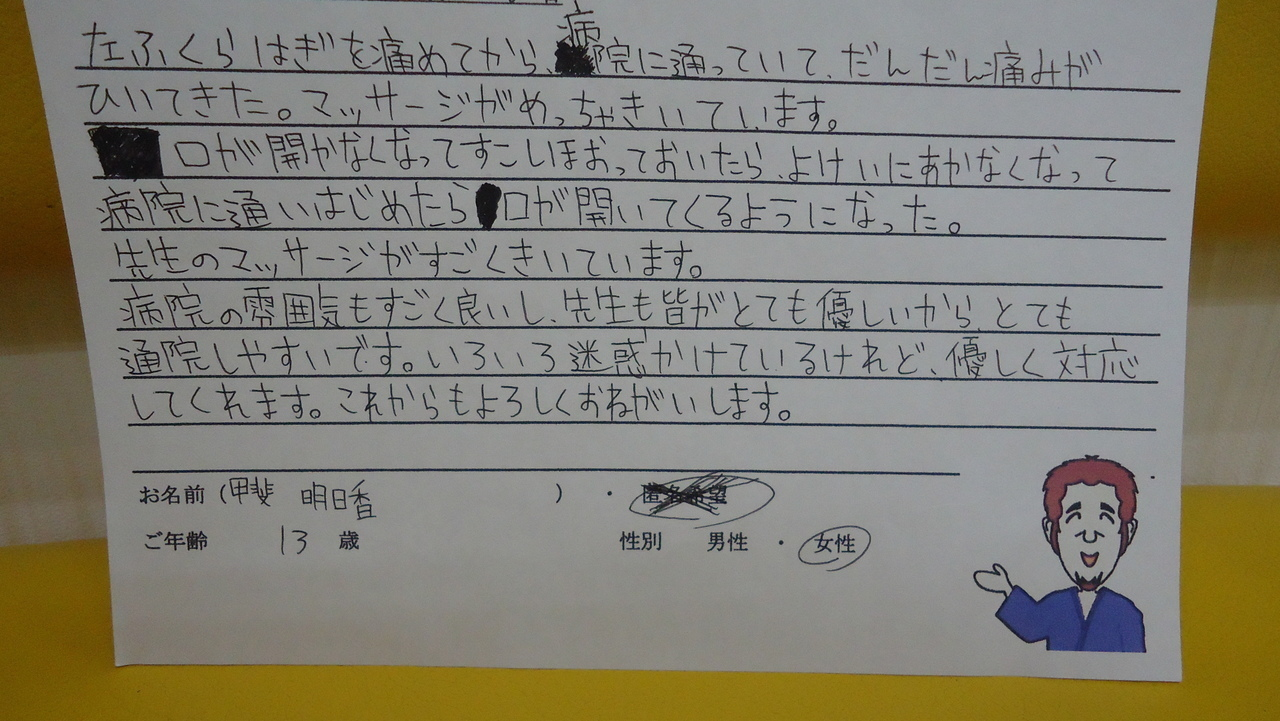 左ふくらはぎを痛めてから、病院に通っていて、だんだん痛みが
ひいてきた。マッサージがめっちゃきいています。
口が開かなくなってすこしほおっておいたら、よけいにあかなくなって
病院に通いはじめたら口が開いてくるようになった。
先生のマッサージがすごくきいています。
病院の雰囲気もすごく良いし、先生も皆がとても優しいから、とても
通院しやすいです。いろいろ迷惑かけているけれど、優しく対応
してくれます。これからもよろしくおねがいします。
お名前（甲斐 明日香 ）・匿名希望
ご年齢 13 歳 性別 男性・女性